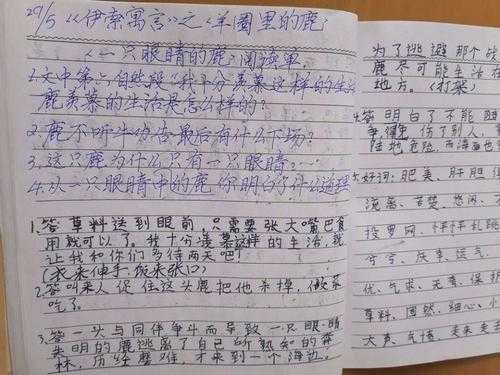 29/5 《伊索寓言》之《羊圈里的鹿》
《一只眼睛的鹿》阅读单
1.文中第2自然段"我十分羡慕这样的生活
鹿羡慕的生活是怎么样的?
2.鹿不听牛劝告最后有什么下场?
3.这只鹿为什么只有一只眼睛?
4.从一只眼睛中的鹿,你明白了什么道理
1.答草料送到眼前,只需要张大嘴巴食
用就可以了。我十分羡慕这样的生活,就
让我和你们多待两天吧!
(衣来伸手饭来张口)
2.答叫来人捉住这头鹿把他杀掉,做菜
吃了。
3.答一头与同伴争斗而导致一只眼睛
失明的鹿逃离了自己所熟知的森
林,历经磨难,才来到一个海边。
为了逃避那个
鹿尽可能生活在
地方。
4.答明白了不能
伤了别人,
陆地危险,而海面也
5.好词:肥美、肝胆俱
流离、苦楚、悠闲、不
投罗网、怦怦乱跳
兮兮、庆幸、运气、
优、气味、无毒、保护
草料、固然、细心、小
大声、气愤、